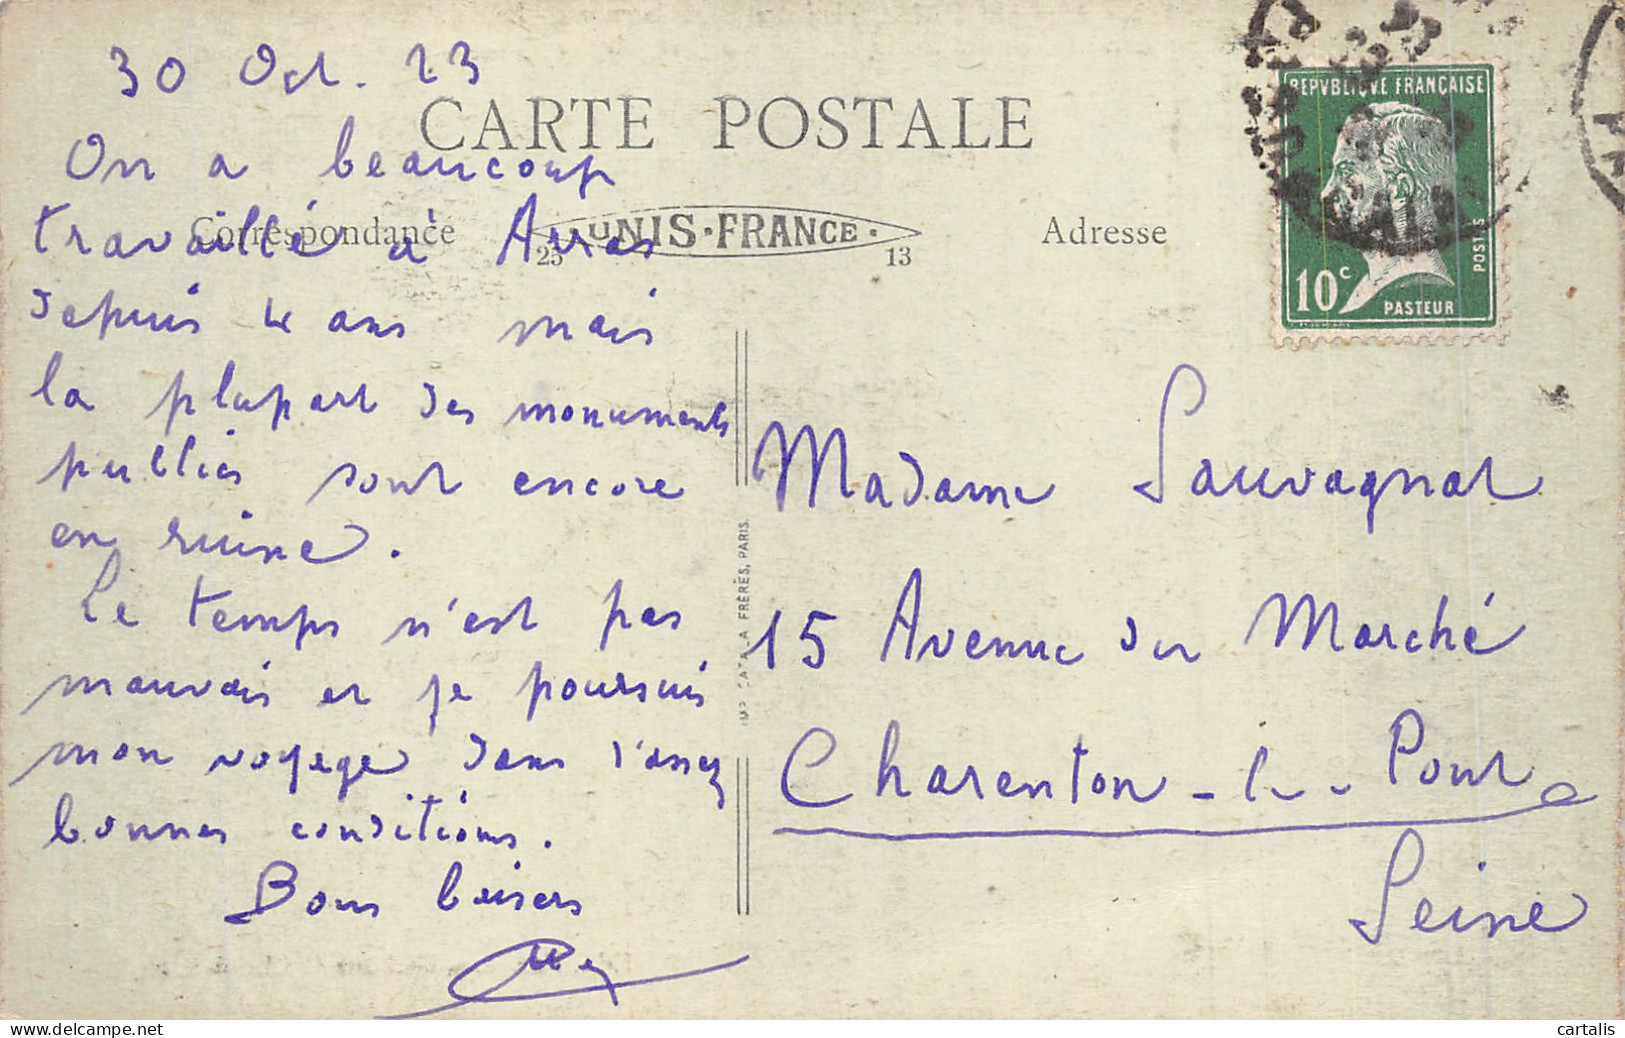 30 Oct. 23
CARTE POSTALE
On a beaucoup
travaillé à Arras
Correspondance
UNIS-FRANCE.
25 13
Adresse
depuis 4 ans mais
la plupart des monuments
publics sont encore
en ruine.
Le temps n'est pas
mauvais et je poursuis
mon voyage dans d'assez
bonnes conditions.
Bons baisers
REPVBLIQVE FRANÇAISE
POSTES
10c
PASTEUR
IMP. CATALA FRÈRES, PARIS.
Madame Sauvagnat
15 Avenue du Marché
Charenton-le-Pont
Seine
cartalis